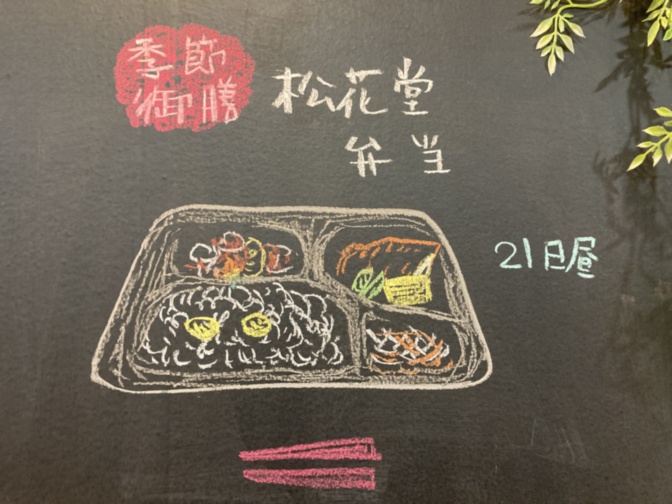 季節
御膳
松花堂
弁当
21日昼